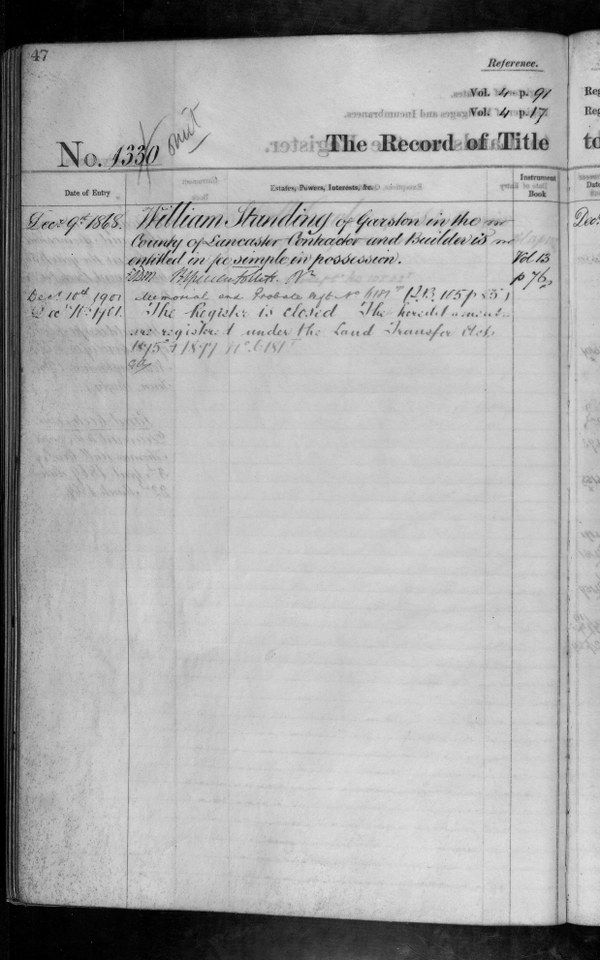 47
Reference.
Vol. 4 p. 91
Vol. 4 p. 17
No. 1330 omit
The Record of Title
Date of Entry
Estates, Powers, Interests, &c.
Instrument Book
Decr 9th 1868. William Standing of Garston in the
County of Lancaster Contractor and Builder is
entitled in fee simple in possession. Vol. 13
p 76
Dect 10th 1901 Memorial and Probate
Decr 11th 1901. The Register is closed The hereditaments
are registered under the Land Transfer Acts
1875 & 1897
Reg
Reg
to
Date
Decr